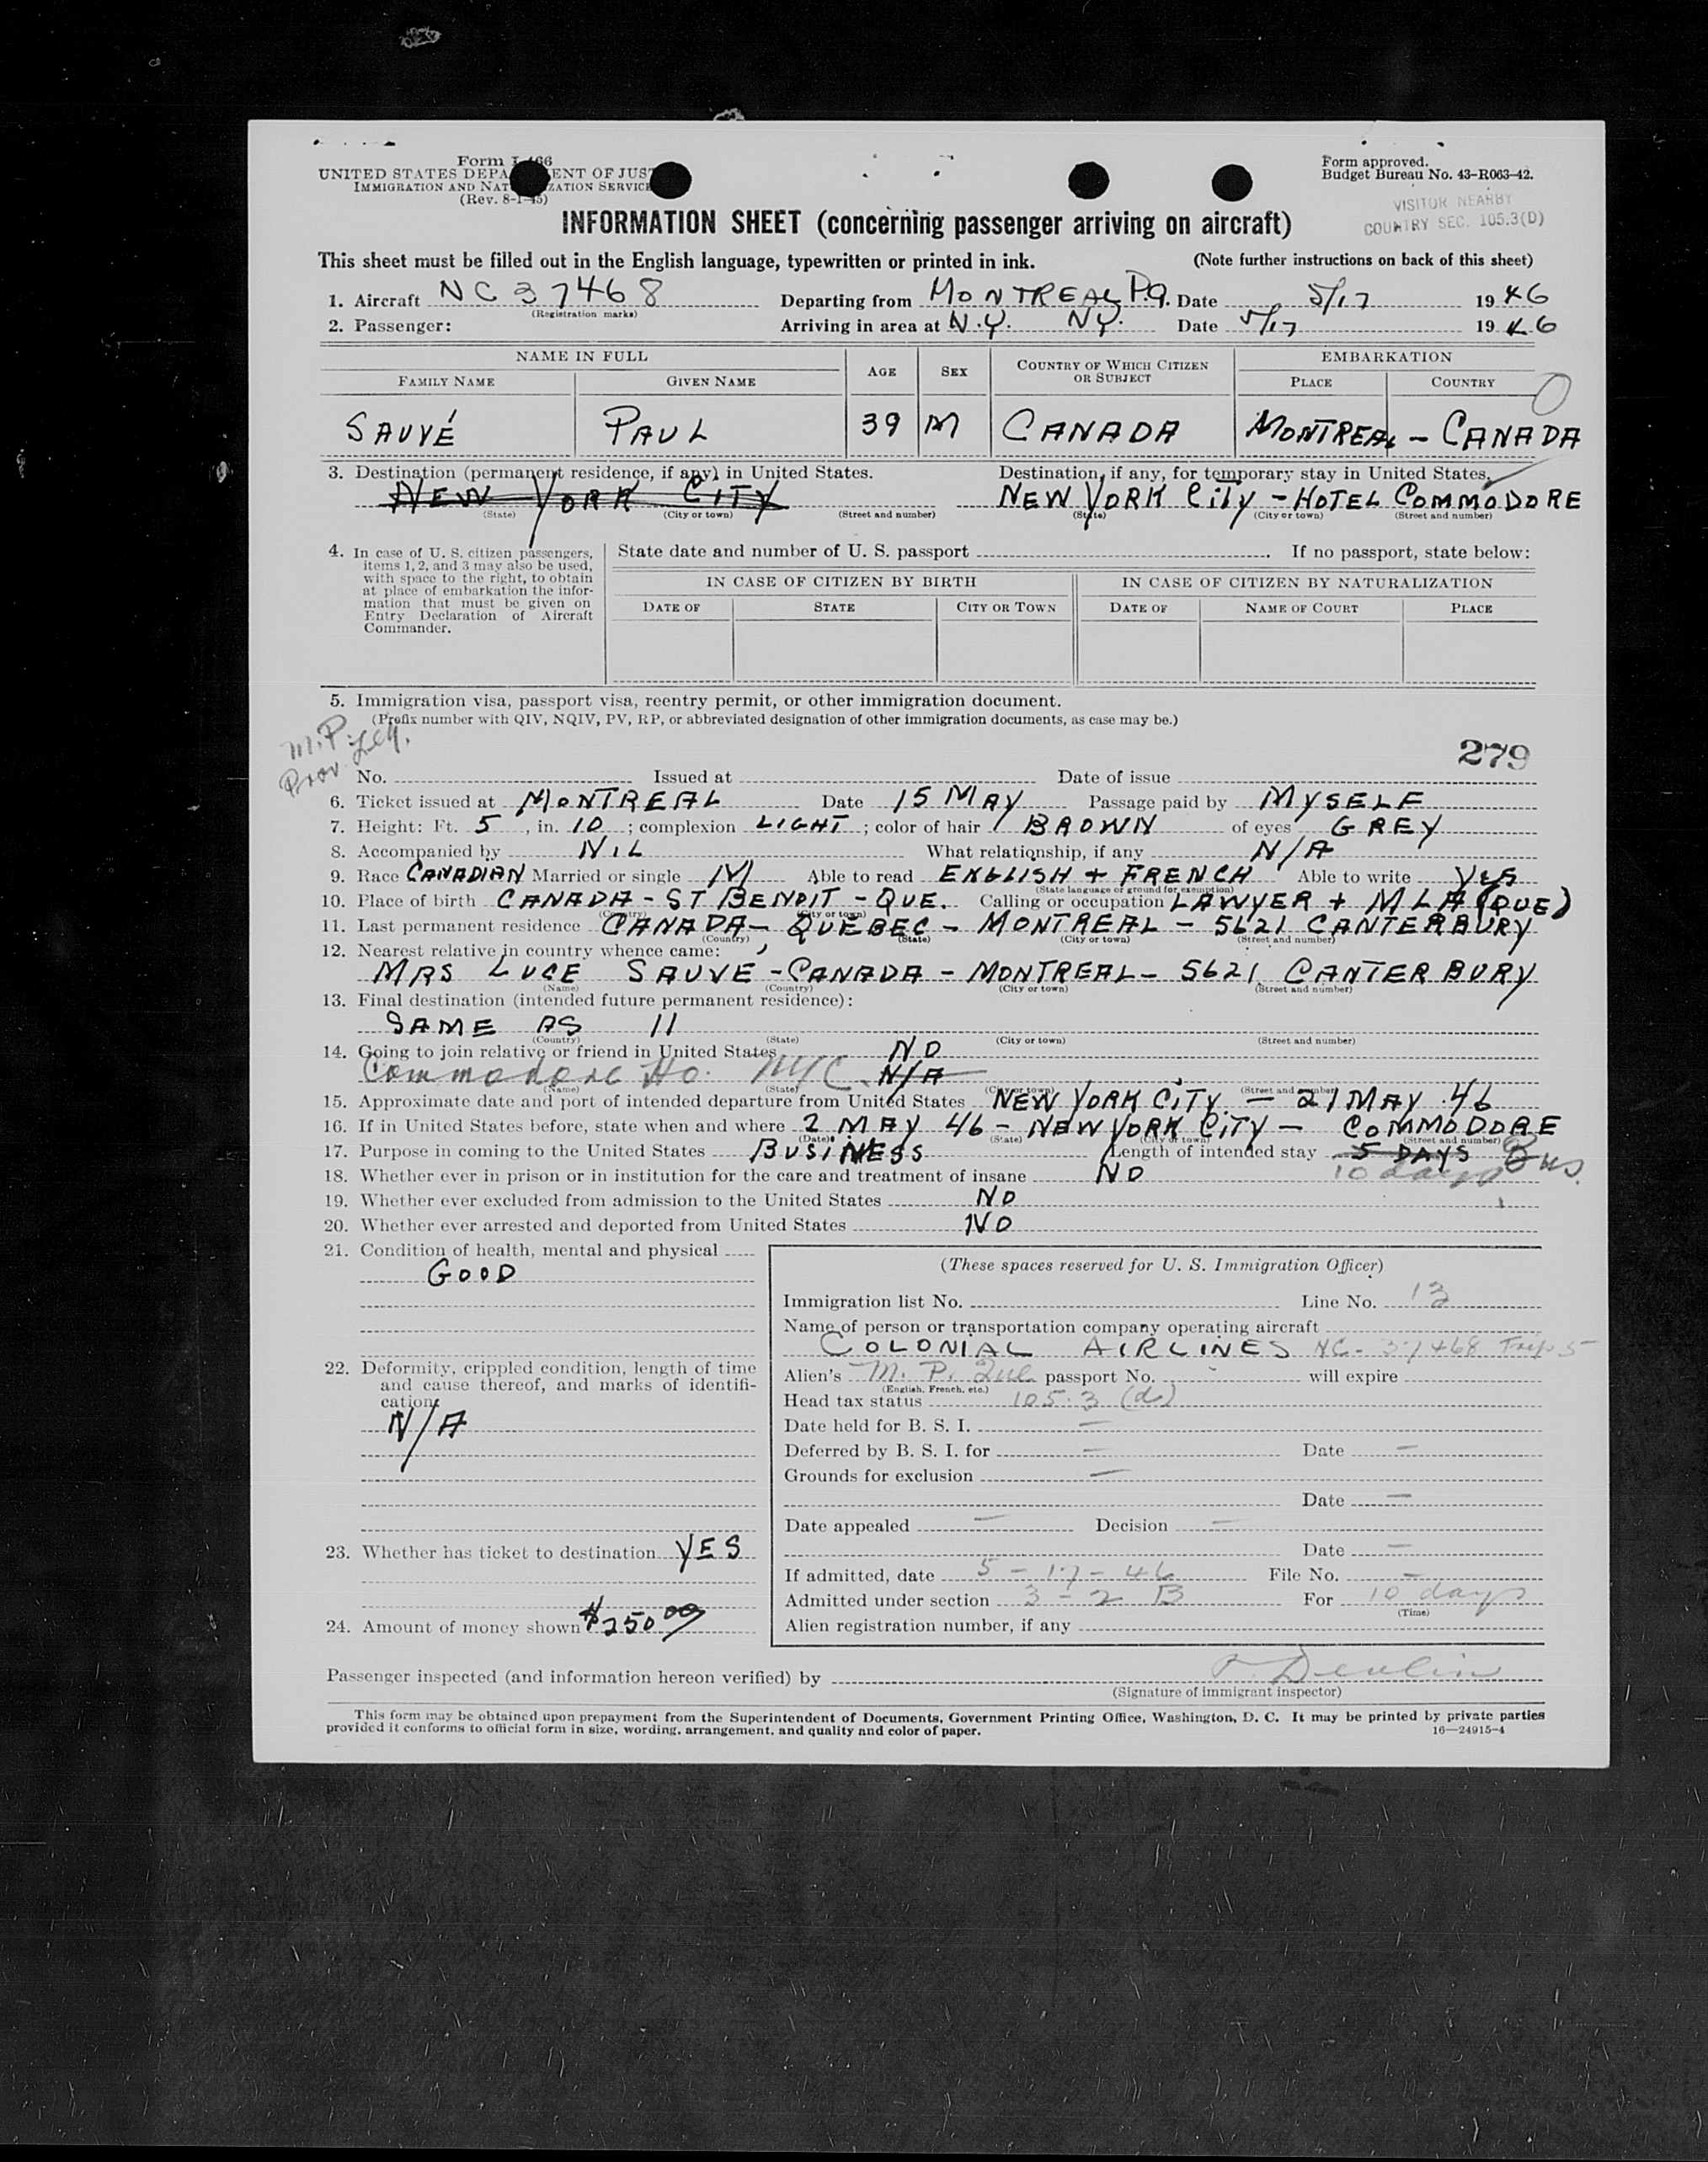 Form I-466
UNITED STATES DEPARTMENT OF JUSTICE
IMMIGRATION AND NATURALIZATION SERVICE
(Rev. 8-1-45)
Form approved.
Budget Bureau No. 43-R063-42.
VISITOR NEARBY
COUNTRY SEC. 105.3(D)
INFORMATION SHEET (concerning passenger arriving on aircraft)
This sheet must be filled out in the English language, typewritten or printed in ink. (Note further instructions on back of this sheet)
1. Aircraft NC 37468 Departing from MONTREAL P.Q. Date 5/17 1946
(Registration marks)
2. Passenger: Arriving in area at N.Y. NY. Date 5/17 1946
NAME IN FULL AGE SEX COUNTRY OF WHICH CITIZEN OR SUBJECT EMBARKATION
FAMILY NAME GIVEN NAME PLACE COUNTRY
SAUVÉ PAUL 39 M CANADA MONTREAL - CANADA
3. Destination (permanent residence, if any) in United States. Destination, if any, for temporary stay in United States.
NEW YORK CITY NEW YORK City - HOTEL COMMODORE
(State) (City or town) (Street and number) (State) (City or town) (Street and number)
4. In case of U. S. citizen passengers, items 1, 2, and 3 may also be used, with space to the right, to obtain at place of embarkation the information that must be given on Entry Declaration of Aircraft Commander.
State date and number of U. S. passport . If no passport, state below:
IN CASE OF CITIZEN BY BIRTH IN CASE OF CITIZEN BY NATURALIZATION
DATE OF STATE CITY OR TOWN DATE OF NAME OF COURT PLACE
5. Immigration visa, passport visa, reentry permit, or other immigration document.
(Prefix number with QIV, NQIV, PV, RP, or abbreviated designation of other immigration documents, as case may be.)
M.P.
Prov. Leg.
279
No. Issued at Date of issue
6. Ticket issued at MONTREAL Date 15 MAY Passage paid by MYSELF
7. Height: Ft. 5, in. 10; complexion LIGHT; color of hair BROWN of eyes GREY
8. Accompanied by NIL What relationship, if any N/A
9. Race CANADIAN Married or single M Able to read ENGLISH + FRENCH Able to write YES
(State language or ground for exemption)
10. Place of birth CANADA - ST BENOIT - QUE. Calling or occupation LAWYER + MLA (QUE)
(Country) (City or town)
11. Last permanent residence CANADA - QUEBEC - MONTREAL - 5621 CANTERBURY
(Country) (State) (City or town) (Street and number)
12. Nearest relative in country whence came:
MRS LUCE SAUVÉ - CANADA - MONTREAL - 5621 CANTERBURY
(Name) (Country) (City or town) (Street and number)
13. Final destination (intended future permanent residence):
SAME AS 11
(Country) (State) (City or town) (Street and number)
14. Going to join relative or friend in United States NO
Commodore Ho. NYC N/A
(Name) (State) (City or town) (Street and number)
15. Approximate date and port of intended departure from United States NEW YORK CITY - 21 MAY 46
16. If in United States before, state when and where 2 MAY 46 - NEW YORK CITY - COMMODORE
(Date) (State) (City or town) (Street and number)
17. Purpose in coming to the United States BUSINESS Length of intended stay 5 DAYS Bus.
10 days
18. Whether ever in prison or in institution for the care and treatment of insane NO
19. Whether ever excluded from admission to the United States NO
20. Whether ever arrested and deported from United States NO
21. Condition of health, mental and physical
GOOD
22. Deformity, crippled condition, length of time and cause thereof, and marks of identification
N/A
23. Whether has ticket to destination YES
24. Amount of money shown $250 00
(These spaces reserved for U. S. Immigration Officer)
Immigration list No. Line No. 13
Name of person or transportation company operating aircraft
COLONIAL AIRLINES NC-37468 Trip 5
Alien's M. P. Que passport No. will expire
(English, French, etc.)
Head tax status 105.3 (d)
Date held for B. S. I. —
Deferred by B. S. I. for — Date —
Grounds for exclusion —
Date —
Date appealed — Decision —
Date —
If admitted, date 5-17-46 File No. —
Admitted under section 3-2 B For 10 days
(Time)
Alien registration number, if any
Passenger inspected (and information hereon verified) by Devlin
(Signature of immigrant inspector)
This form may be obtained upon prepayment from the Superintendent of Documents, Government Printing Office, Washington, D. C. It may be printed by private parties
provided it conforms to official form in size, wording, arrangement, and quality and color of paper. 16—24915-4